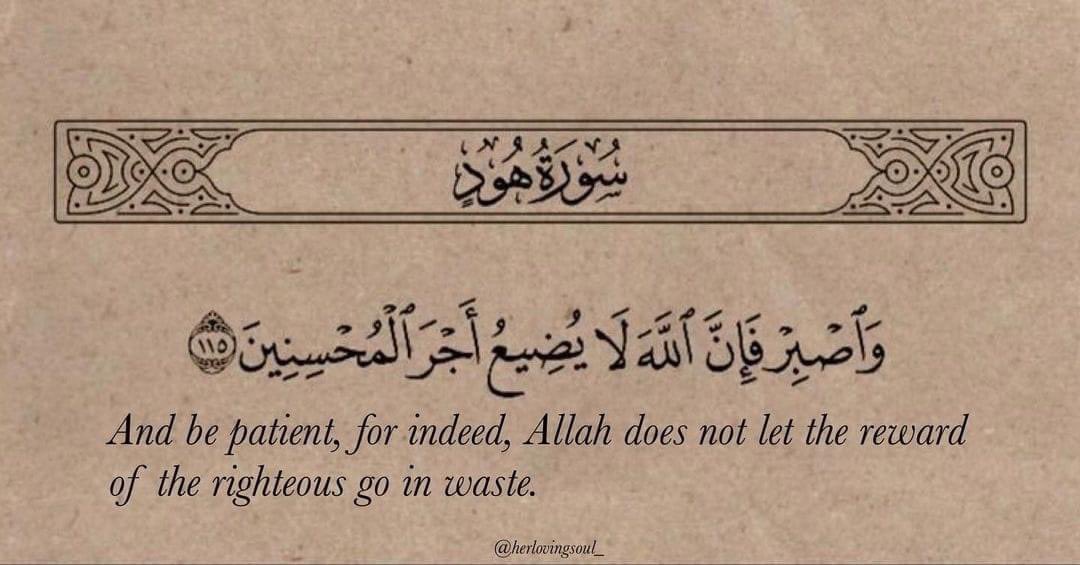 سُورَةُ هُودٍ
وَٱصْبِرْ فَإِنَّ ٱللَّهَ لَا يُضِيعُ أَجْرَ ٱلْمُحْسِنِينَ ١١٥
And be patient, for indeed, Allah does not let the reward
of the righteous go in waste.
@herlovingsoul_